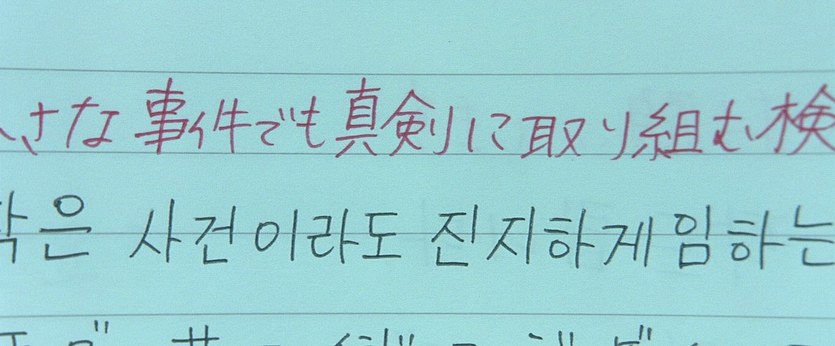 さな事件でも真剣に取り組む検
작은 사건이라도 진지하게임하는